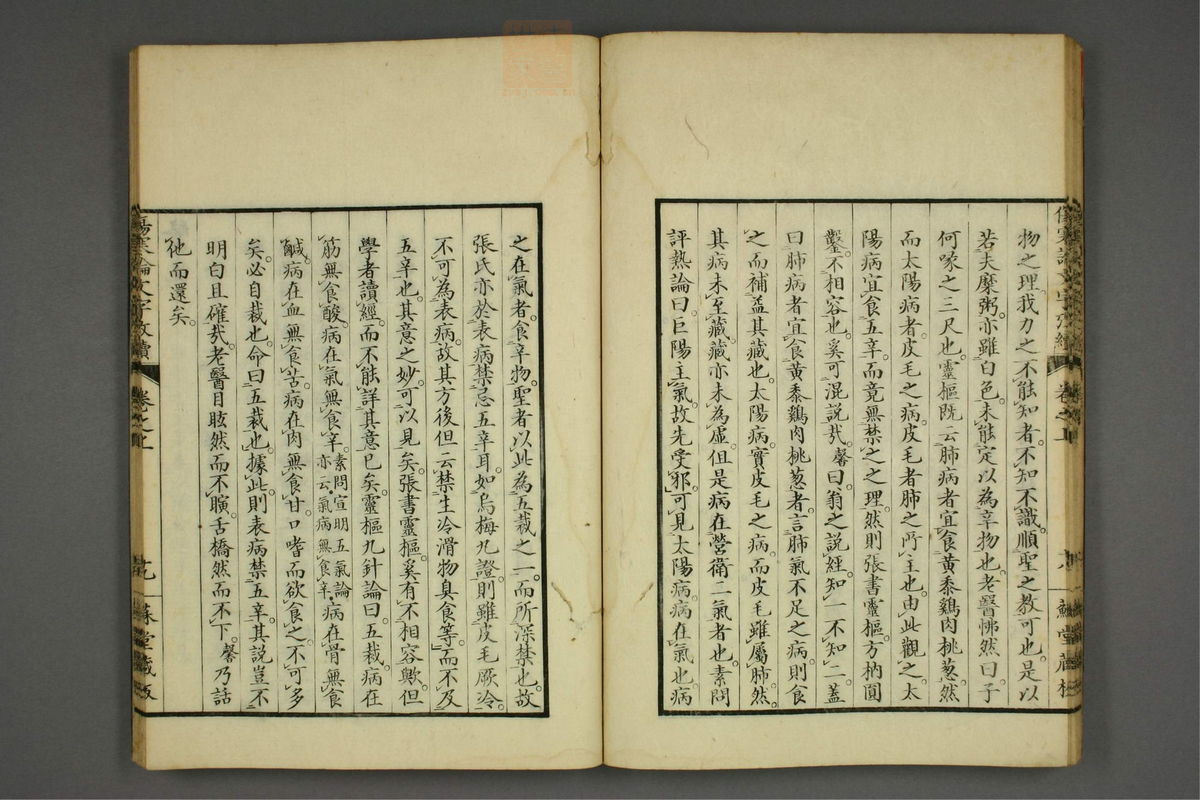 物之理我力之不能知者。不知不識。順聖之教可也。是以
若夫糜粥。亦雖白色。未能定以為辛物也。老醫怫然曰。子
何喙之三尺也。靈樞既云肺病者宜食黃黍鷄肉桃葱。然
而太陽病者。皮毛之病。皮毛者肺之所主也。由此觀之。太
陽病宜食五辛。而竟無禁之之理。然則張書靈樞。方枘圓
鑿。不相容也。奚可混説哉。馨曰。翁之説。知一不知二。蓋
曰肺病者宜食黃黍鷄肉桃葱者。言肺氣不足之病。則食
之而補益其藏也。太陽病實皮毛之病。而皮毛雖屬肺。然
其病未至藏。藏亦未為虛。但是病在營衛二氣者也。素問
評熱論曰。巨陽主氣。故先受邪。可見太陽病。病在氣也。病
之在氣者。食辛物。聖者以此為五裁之一。而所深禁也。故
張氏亦於表病禁忌五辛耳。如烏梅丸證。則雖皮毛厥冷。
不可為表病。故其方後但云禁生冷滑物臭食等。而不及
五辛也。其意之妙。可以見矣。張書靈樞。奚有不相容歟。但
學者讀經。而不能詳其意已矣。靈樞九針論曰。五裁。病在
筋無食酸。病在氣無食辛。素問宣明五氣論亦云。氣病無食辛。病在骨無食
鹹。病在血無食苦。病在肉無食甘。口嗜而欲食之。不可多
矣。必自裁也。命曰五裁也。據此則表病禁五辛。其説豈不
明白且確哉。老醫目眩然而不瞚。舌橋然而不下。馨乃話
他而還矣。
傷寒論文字攷續
卷之上
蘇堂藏板